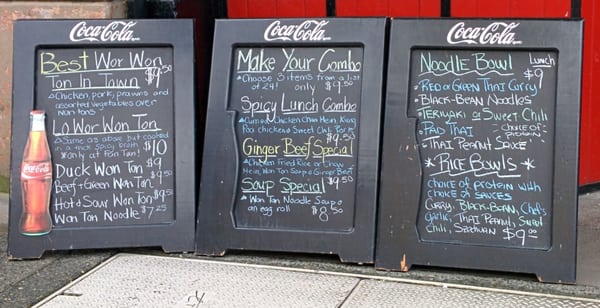 Coca-Cola
Best Wor Won
Ton In Town $9.50
Chicken, pork, prawns and
assorted vegetables over
won tons
Lo Wor Won Ton
Same as above but cooked
in a rich spicy broth $10
*Only at Fan Tan!*
Duck Won Ton $9
Beef + Green Wan Tan $9.50
Hot & Sour Won Ton $9.50
Won Ton Noodle $7.25
Coca-Cola
Make Your Combo
Choose 3 items from a list
of 24! only $9.50
Spicy Lunch Combo
Chicken Chow Mein, Kung
Pao chicken & Sweet Chili Pork
$9.50
Ginger Beef Special
Chicken Fried Rice or Chow
Mein, Won Ton Soup & Ginger Beef
$9.50
Soup Special
Won Ton Noodle Soup &
an egg roll $8.50
Coca-Cola
Noodle Bowl Lunch
$9
-Red or Green Thai Curry
-Black-Bean Noodles
-Teriyaki or Sweet Chili
-Pad Thai -choice of
proteins
-Thai Peanut Sauce
*Rice Bowls*
choice of protein with
choice of sauces
Curry, Black-Bean, Chef's
garlic, Thai Peanut, Sweet
Chili, Szechuan $9.00